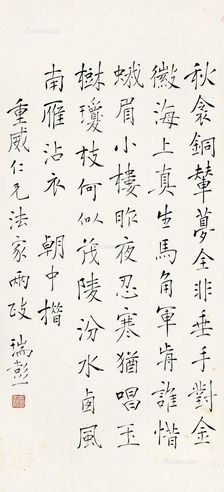 秋衾銅輦夢全非垂手對金
徽海上真生馬角軍前誰惜
蛾眉小樓昨夜忍寒猶唱玉
樹瓊枝何似茂陵汾水鹵風
南雁沾衣 朝中措
重威仁兄法家兩政 瑞彭